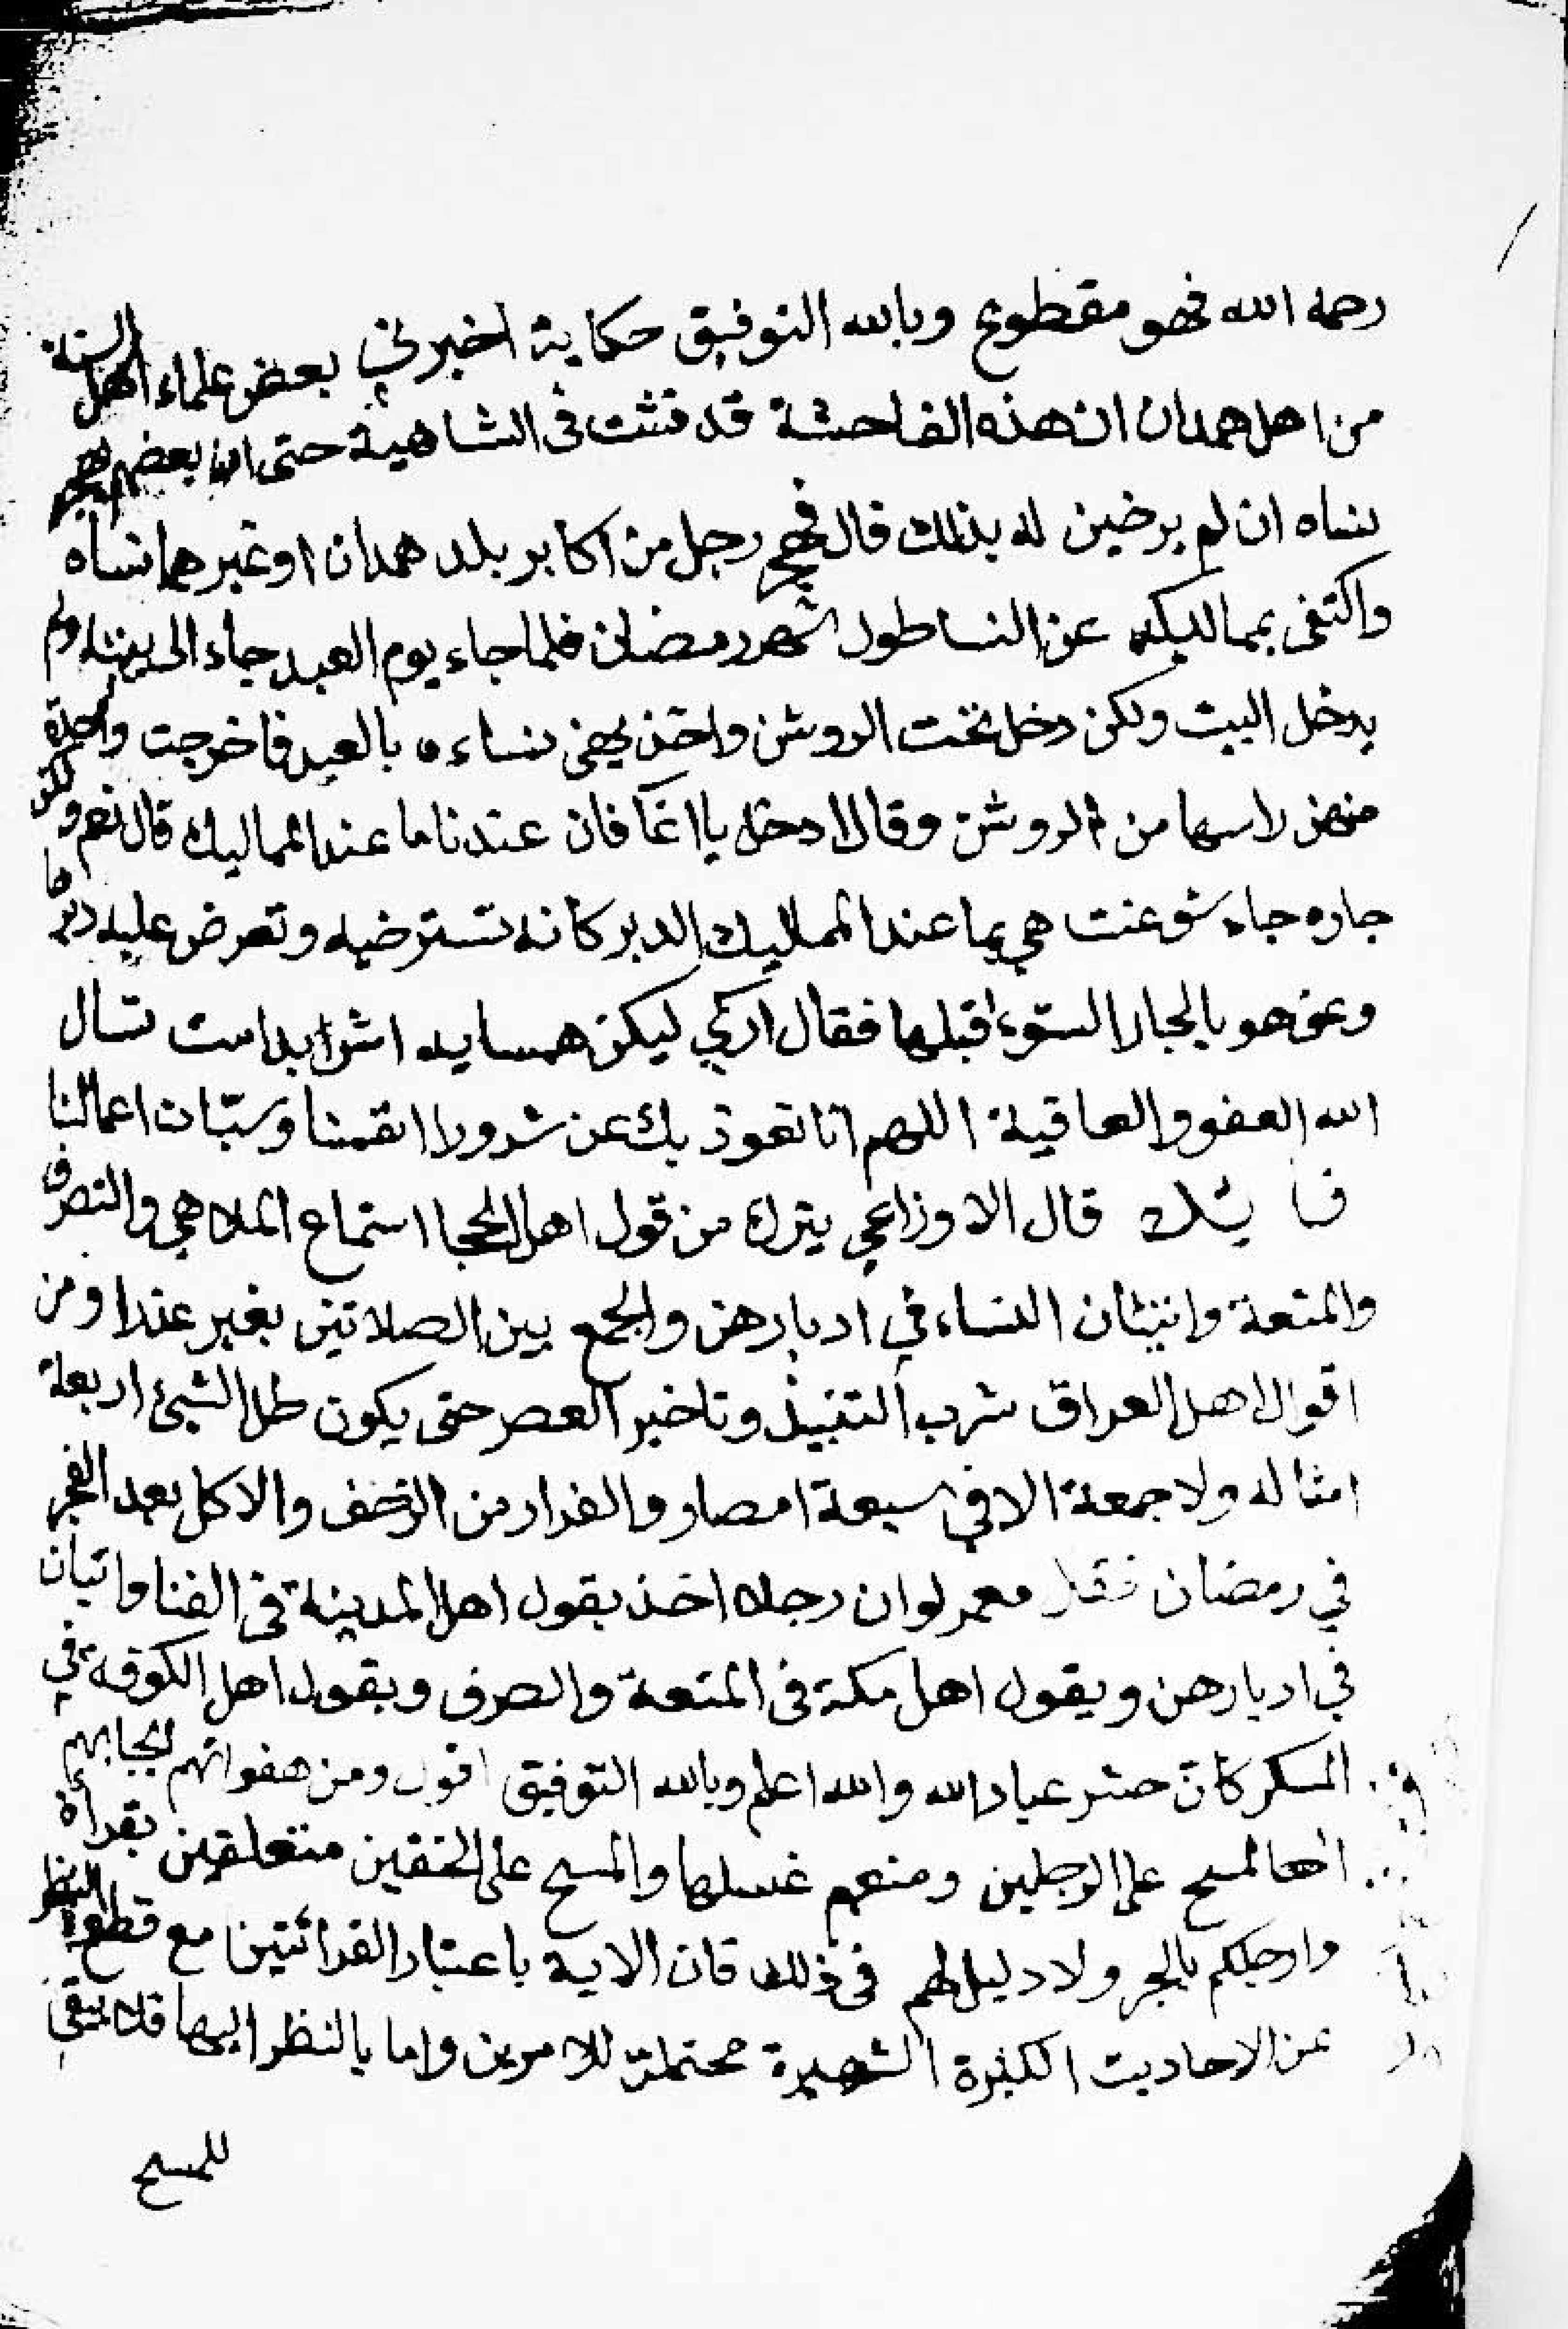 رحمه الله فهو مقطوع وبالله التوفيق حكاية اخبرني بعض علماء اهل السنة
من اهل همدان ان هذه الفاحشة قد فشت في الشاهية حتى ان بعضهم يهجر
نساه ان لم يرضين له بذلك قال فهجر رجل من اكابر بلد همدان او غيرها نساه
واكتفى بمماليكه عن النسا طول شهر رمضان فلما جاء يوم العيد جاء الى بيته ولم
يدخل البيت ولكن دخل تحت الروشن واخذ يهني نساءه بالعيد فاخرجت واحدة
منهن راسها من الروشن وقالا ادخل يا اغا فان عندنا ما عند المماليك قال نعم ولكن
جاره جاء شو عنت هي بما عند المماليك الدبر كانه تسترضيه وتعرض عليه دبرها
وعنى هو بالجار السوء قبلها فقال اركي ليكن همسايه اش ابد است نسال
الله العفو والعاقية اللهم انا نعوذ بك عن شرور انفسنا وسيّات اعمالنا
قال الاوزاعي يترك من قول اهل الحجا استماع الملاهي والتصرف
والمتعة واتيان النساء في ادبارهن والجمع بين الصلاتين بغير عذر ومن
اقوال اهل العراق شرب النبيذ وتاخير العصر حتى يكون ظل الشيئ اربعة
امثاله ولا جمعة الا في سبعة امصار والفرار من الزحف والاكل بعد الفجر
في رمضان فقال معمر لو ان رجلا اخذ بقول اهل المدينة في الغنا واتيان
في ادبارهن وبقول اهل مكة في المتعة والصرف وبقول اهل الكوفة في
المسكر كان شر عباد الله والله اعلم وبالله التوفيق اقول ومن هفواتهم ايجابهم
المسح على الرجلين ومنعهم غسلها والمسح على الخفين متعلقين بقراة
وارجلكم بالجر ولا دليل لهم في ذلك فان الاية باعتبار القرائتين مع قطع النظر
عن الاحاديث الكثيرة الشهيرة محتملة للامرين واما بالنظر اليها فلا يبقى
للمسح